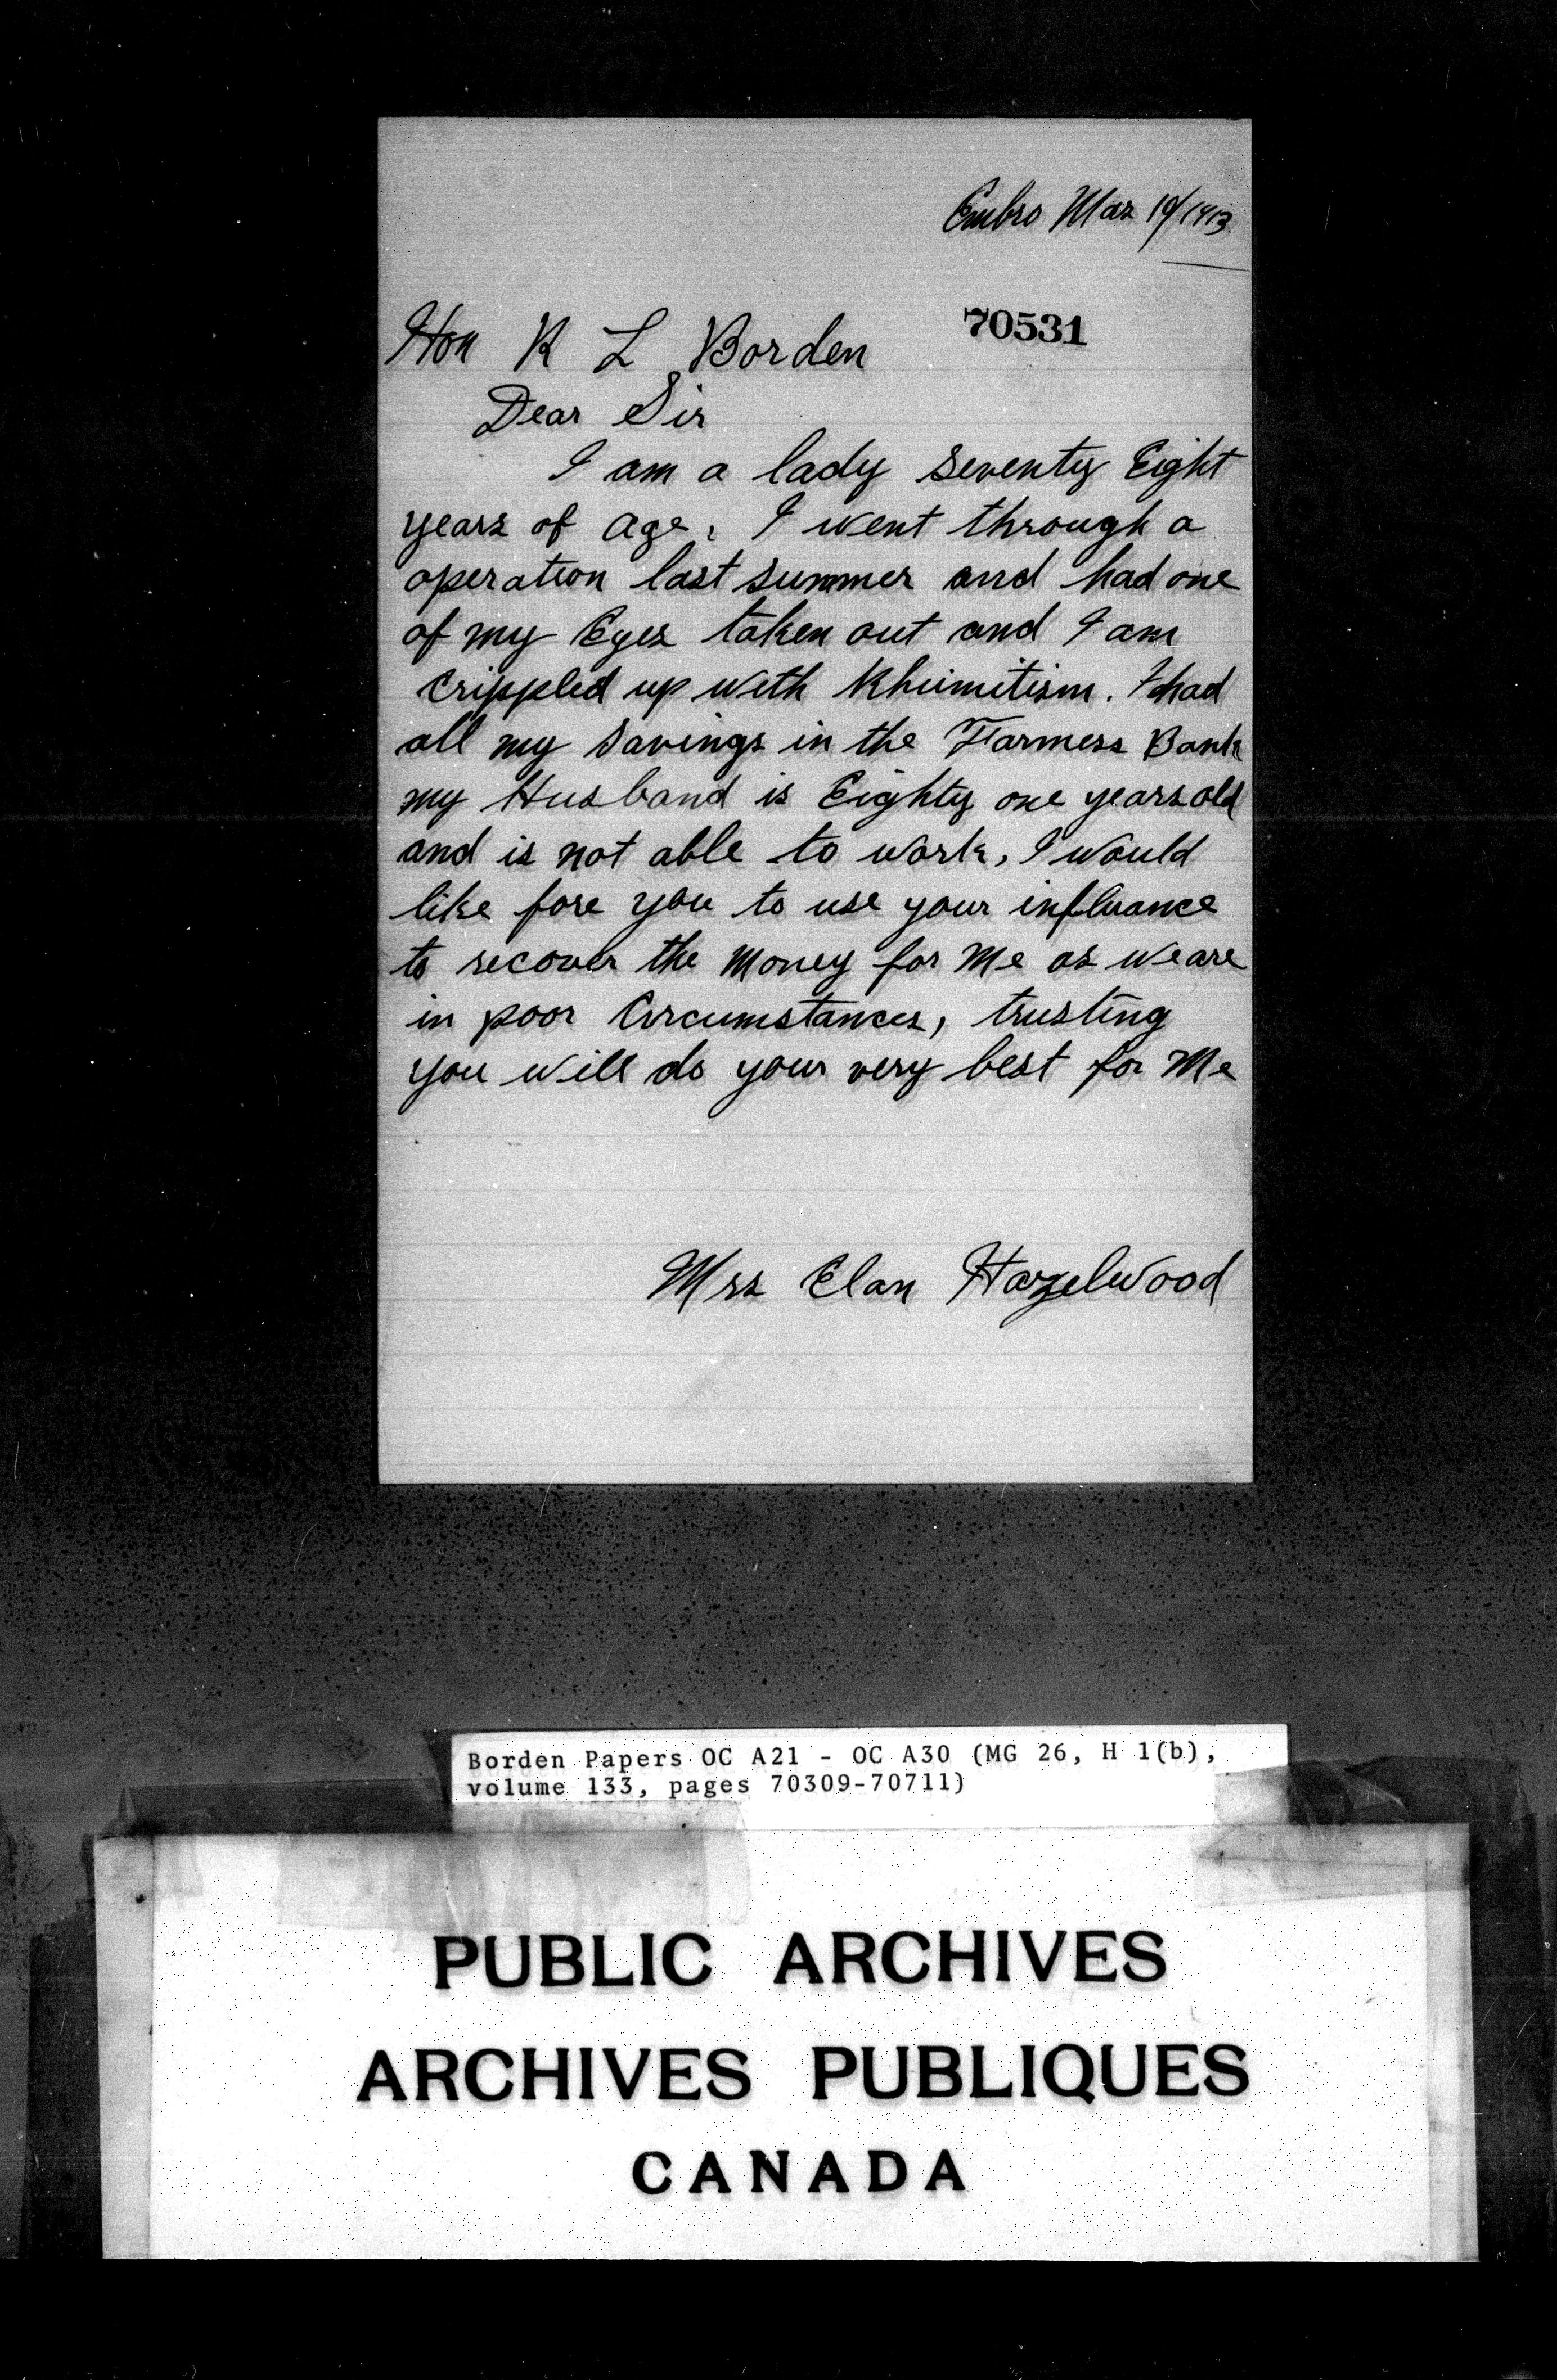 Embro Mar 19/1913
70531
Hon R L Borden
Dear Sir
I am a lady seventy Eight
years of age. I went through a
operation last summer and had one
of my Eyes taken out and I am
Crippled up with Rheimitism. I had
all my savings in the Farmers Bank
my Husband is Eighty one years old
and is not able to work, I would
like fore you to use your influance
to recover the Money for Me as we are
in poor Circumstances, trusting
you will do your very best for Me
Mrs Elan Hazelwood
Borden Papers OC A21 - OC A30 (MG 26, H 1(b),
volume 133, pages 70309-70711)
PUBLIC ARCHIVES
ARCHIVES PUBLIQUES
CANADA